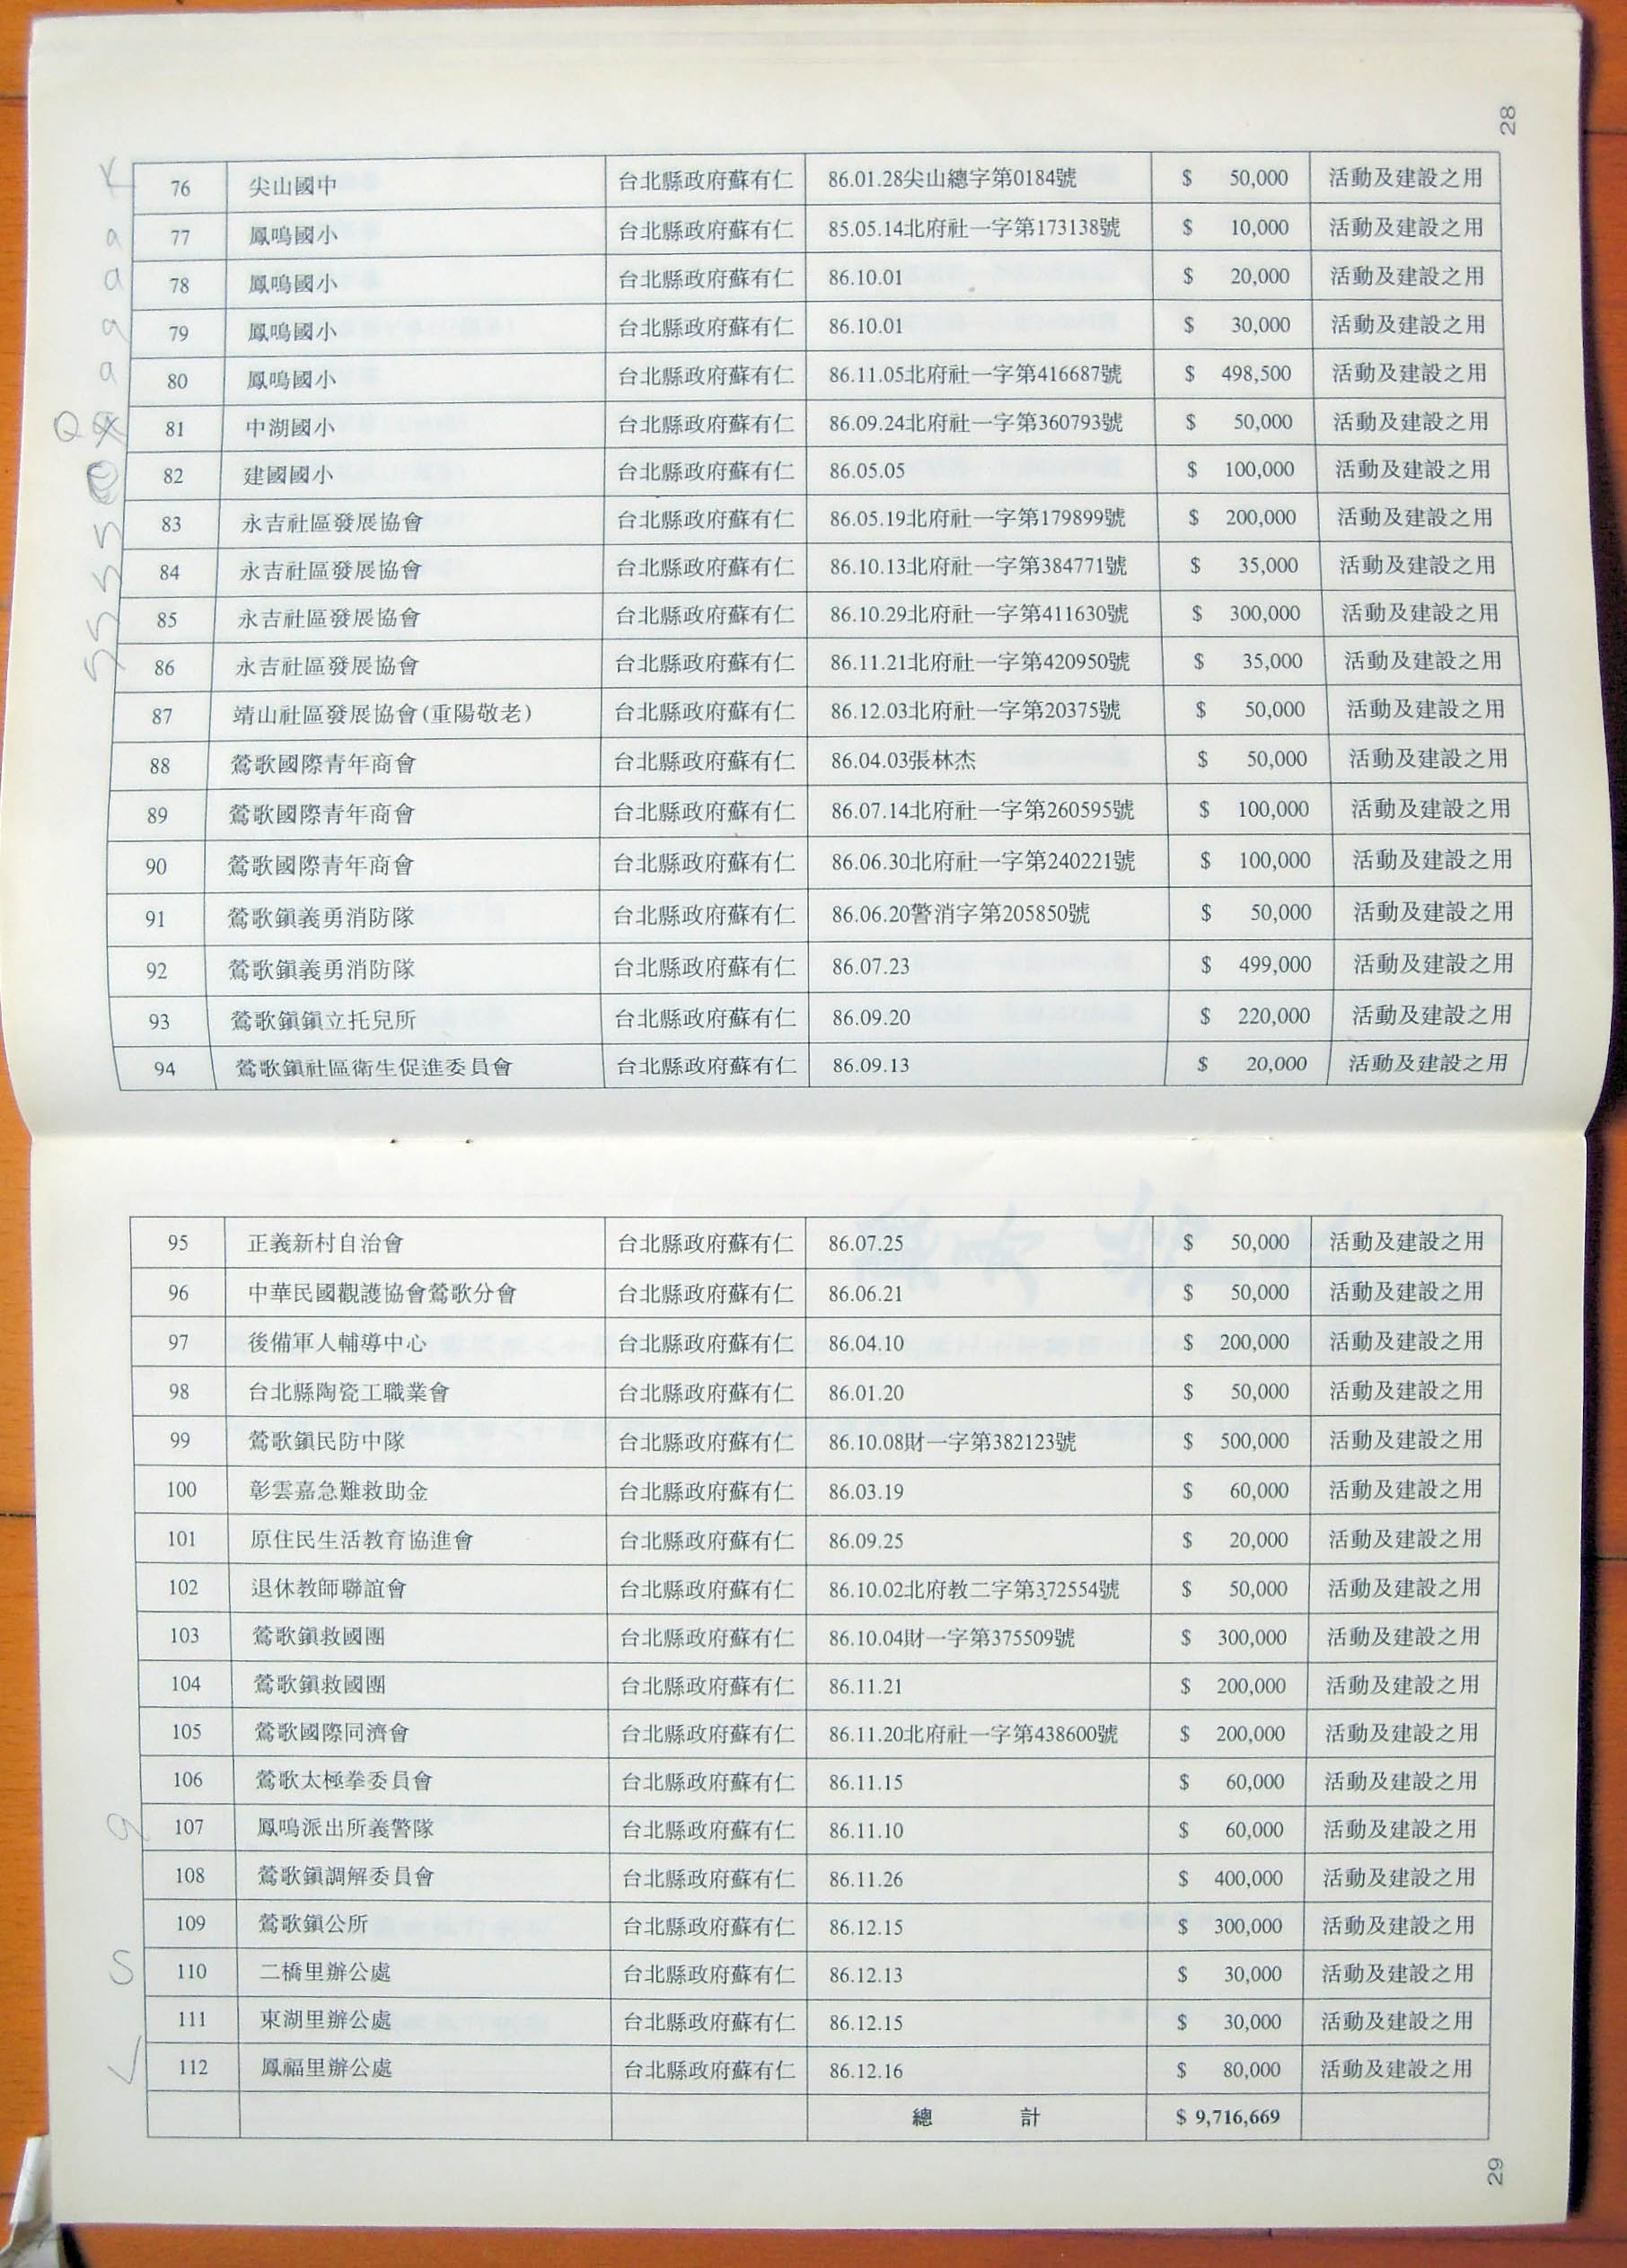 28
76 尖山國中 台北縣政府蘇有仁 86.01.28尖山總字第0184號 $ 50,000 活動及建設之用
77 鳳鳴國小 台北縣政府蘇有仁 85.05.14北府社一字第173138號 $ 10,000 活動及建設之用
78 鳳鳴國小 台北縣政府蘇有仁 86.10.01 $ 20,000 活動及建設之用
79 鳳鳴國小 台北縣政府蘇有仁 86.10.01 $ 30,000 活動及建設之用
80 鳳鳴國小 台北縣政府蘇有仁 86.11.05北府社一字第416687號 $ 498,500 活動及建設之用
81 中湖國小 台北縣政府蘇有仁 86.09.24北府社一字第360793號 $ 50,000 活動及建設之用
82 建國國小 台北縣政府蘇有仁 86.05.05 $ 100,000 活動及建設之用
83 永吉社區發展協會 台北縣政府蘇有仁 86.05.19北府社一字第179899號 $ 200,000 活動及建設之用
84 永吉社區發展協會 台北縣政府蘇有仁 86.10.13北府社一字第384771號 $ 35,000 活動及建設之用
85 永吉社區發展協會 台北縣政府蘇有仁 86.10.29北府社一字第411630號 $ 300,000 活動及建設之用
86 永吉社區發展協會 台北縣政府蘇有仁 86.11.21北府社一字第420950號 $ 35,000 活動及建設之用
87 靖山社區發展協會(重陽敬老) 台北縣政府蘇有仁 86.12.03北府社一字第20375號 $ 50,000 活動及建設之用
88 鶯歌國際青年商會 台北縣政府蘇有仁 86.04.03張林杰 $ 50,000 活動及建設之用
89 鶯歌國際青年商會 台北縣政府蘇有仁 86.07.14北府社一字第260595號 $ 100,000 活動及建設之用
90 鶯歌國際青年商會 台北縣政府蘇有仁 86.06.30北府社一字第240221號 $ 100,000 活動及建設之用
91 鶯歌鎮義勇消防隊 台北縣政府蘇有仁 86.06.20警消字第205850號 $ 50,000 活動及建設之用
92 鶯歌鎮義勇消防隊 台北縣政府蘇有仁 86.07.23 $ 499,000 活動及建設之用
93 鶯歌鎮鎮立托兒所 台北縣政府蘇有仁 86.09.20 $ 220,000 活動及建設之用
94 鶯歌鎮社區衛生促進委員會 台北縣政府蘇有仁 86.09.13 $ 20,000 活動及建設之用
95 正義新村自治會 台北縣政府蘇有仁 86.07.25 $ 50,000 活動及建設之用
96 中華民國觀護協會鶯歌分會 台北縣政府蘇有仁 86.06.21 $ 50,000 活動及建設之用
97 後備軍人輔導中心 台北縣政府蘇有仁 86.04.10 $ 200,000 活動及建設之用
98 台北縣陶瓷工職業會 台北縣政府蘇有仁 86.01.20 $ 50,000 活動及建設之用
99 鶯歌鎮民防中隊 台北縣政府蘇有仁 86.10.08財一字第382123號 $ 500,000 活動及建設之用
100 彰雲嘉急難救助金 台北縣政府蘇有仁 86.03.19 $ 60,000 活動及建設之用
101 原住民生活教育協進會 台北縣政府蘇有仁 86.09.25 $ 20,000 活動及建設之用
102 退休教師聯誼會 台北縣政府蘇有仁 86.10.02北府教二字第372554號 $ 50,000 活動及建設之用
103 鶯歌鎮救國團 台北縣政府蘇有仁 86.10.04財一字第375509號 $ 300,000 活動及建設之用
104 鶯歌鎮救國團 台北縣政府蘇有仁 86.11.21 $ 200,000 活動及建設之用
105 鶯歌國際同濟會 台北縣政府蘇有仁 86.11.20北府社一字第438600號 $ 200,000 活動及建設之用
106 鶯歌太極拳委員會 台北縣政府蘇有仁 86.11.15 $ 60,000 活動及建設之用
107 鳳鳴派出所義警隊 台北縣政府蘇有仁 86.11.10 $ 60,000 活動及建設之用
108 鶯歌鎮調解委員會 台北縣政府蘇有仁 86.11.26 $ 400,000 活動及建設之用
109 鶯歌鎮公所 台北縣政府蘇有仁 86.12.15 $ 300,000 活動及建設之用
110 二橋里辦公處 台北縣政府蘇有仁 86.12.13 $ 30,000 活動及建設之用
111 東湖里辦公處 台北縣政府蘇有仁 86.12.15 $ 30,000 活動及建設之用
112 鳳福里辦公處 台北縣政府蘇有仁 86.12.16 $ 80,000 活動及建設之用
總 計 $ 9,716,669
29